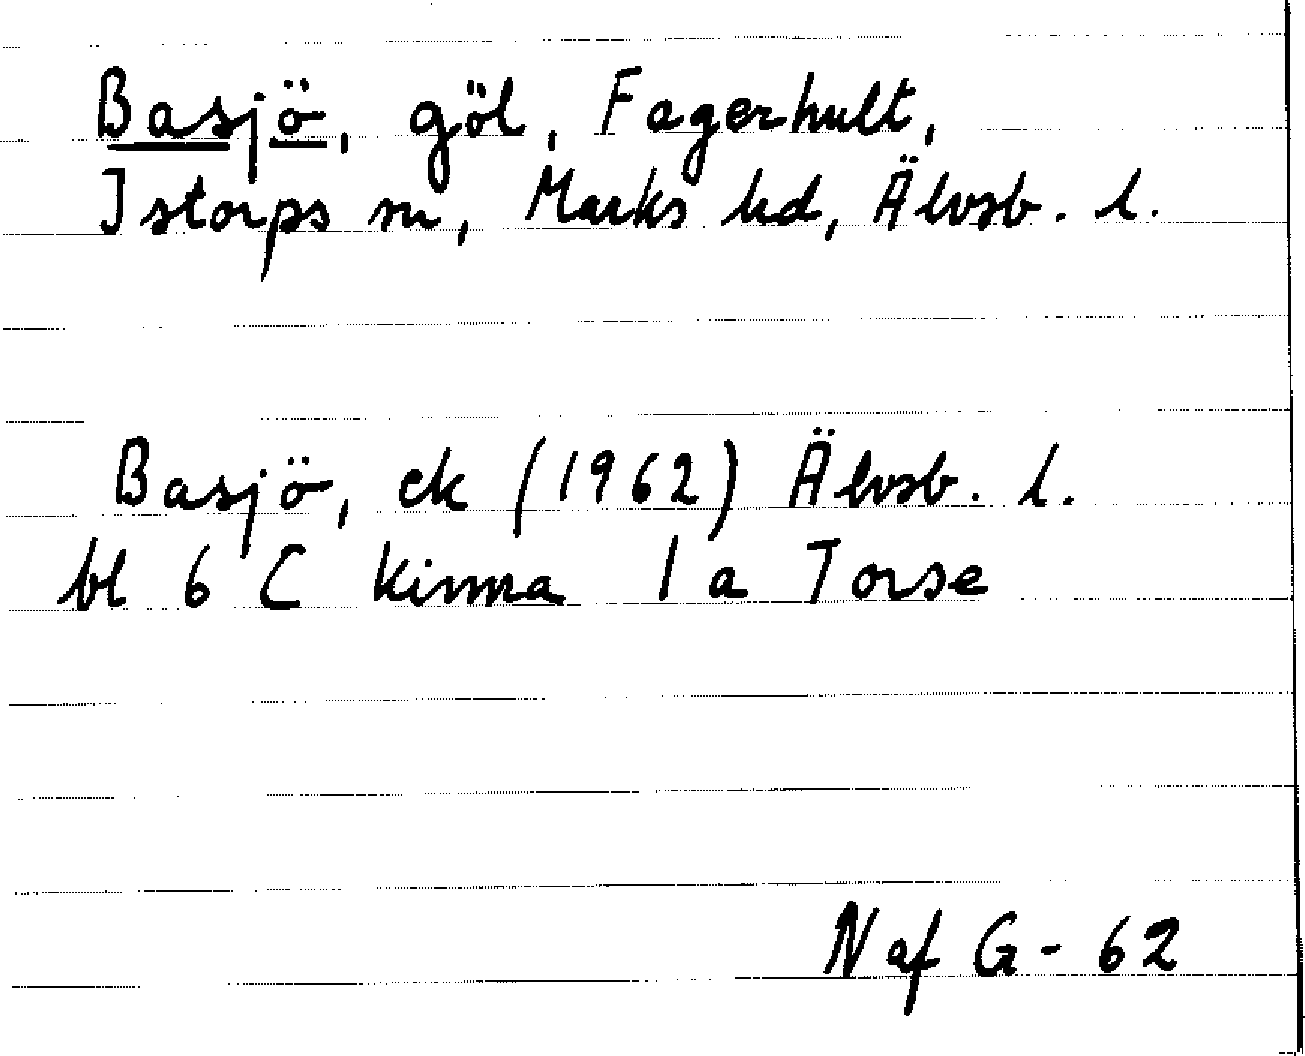 Basjö, göl, Fagerhult,
Istorps sn, Marks hd, Älvsb. l.
Basjö, ek (1962) Älvsb. l.
bl 6 C Kinna 1 a Torse
N af G - 62